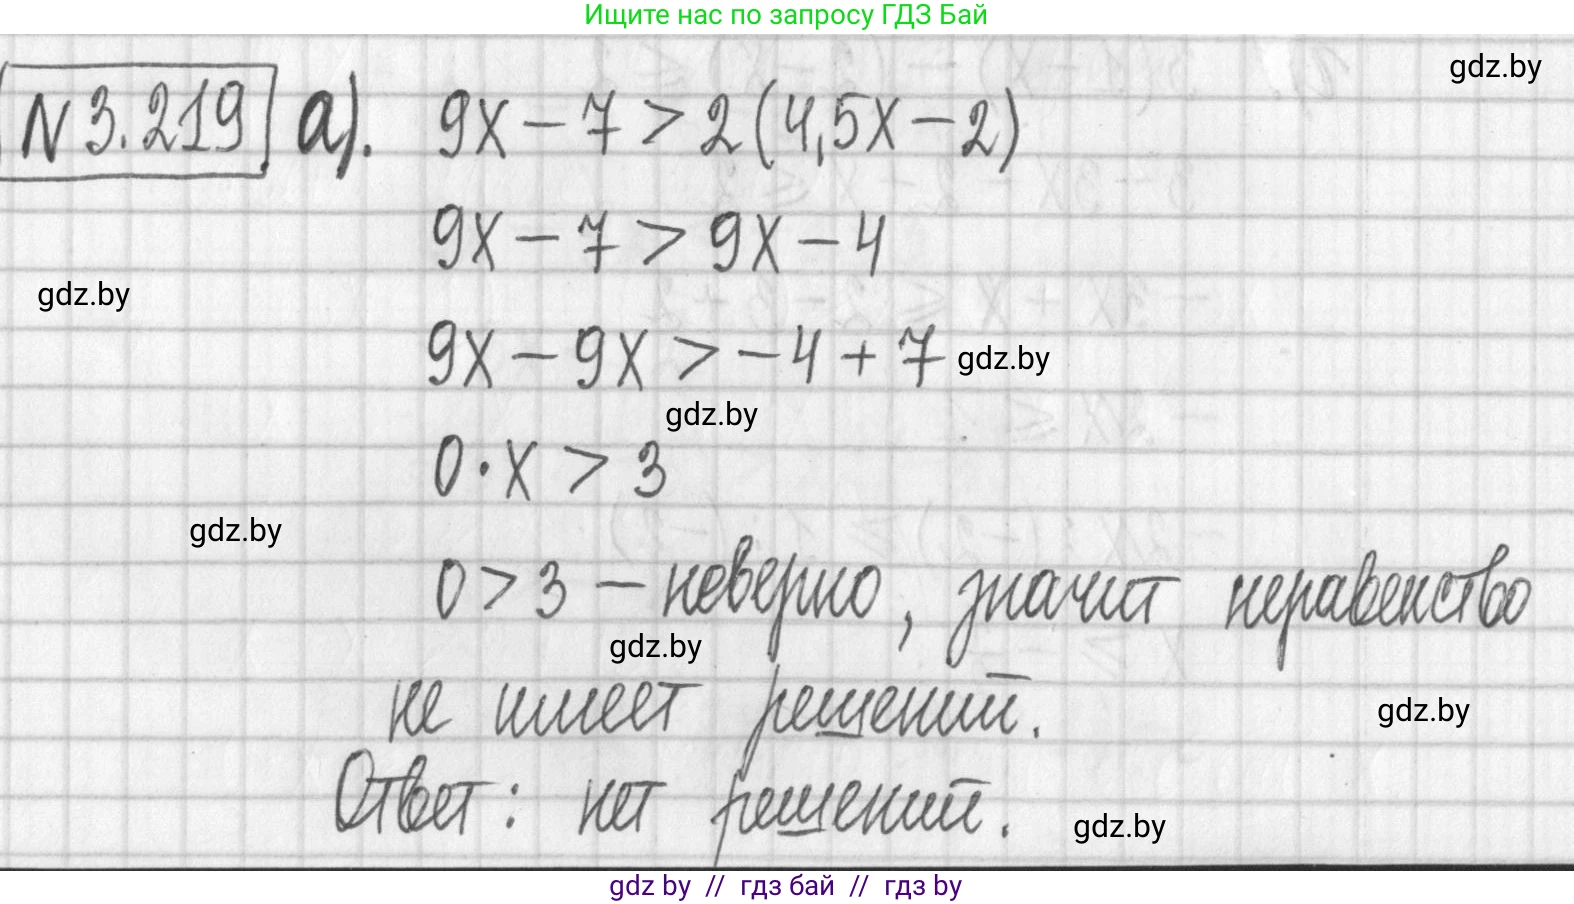 Ищите нас по запросу ГДЗ Бай
gdz.by
N 3.219 а). 9x − 7 > 2(4,5x − 2)
9x − 7 > 9x − 4
gdz.by
9x − 9x > −4 + 7 gdz.by
gdz.by
0·x > 3
gdz.by
0 > 3 − неверно, значит неравенство
gdz.by
не имеет решений.
gdz.by
Ответ: нет решений.
gdz.by
gdz by // гдз бай // гдз by